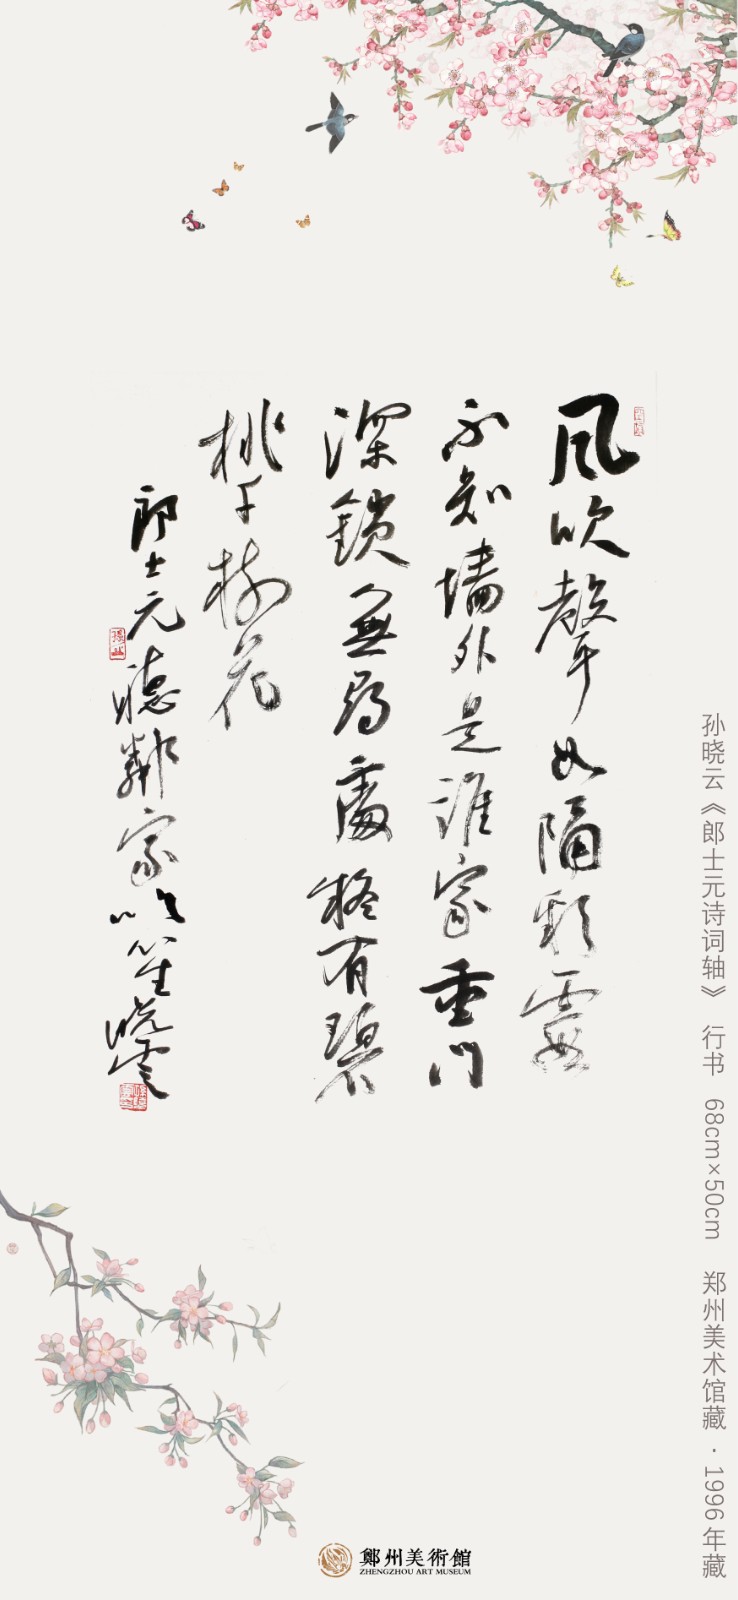 风吹聲如隔彩霞
不知墙外是誰家重门
深鎖無尋處疑有碧
桃千树花
郎士元聽鄰家吹笙曉雲
孙晓云《郎士元诗词轴》 行书 68cm×50cm 郑州美术馆藏·1996年藏
鄭州美術館
ZHENGZHOU ART MUSEUM